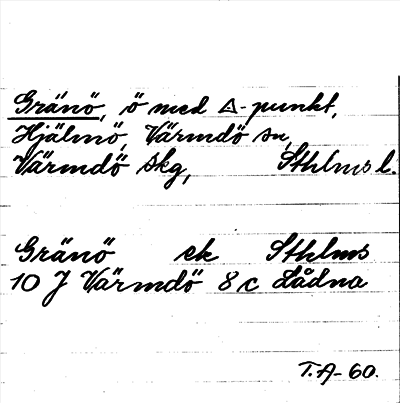 Gränö, ö med △-punkt,
Hjälmö, Värmdö sn,
Värmdö skg, Sthlms l.
Gränö ek Sthlms
10 J Värmdö 8 c Lådna
T.A-60.